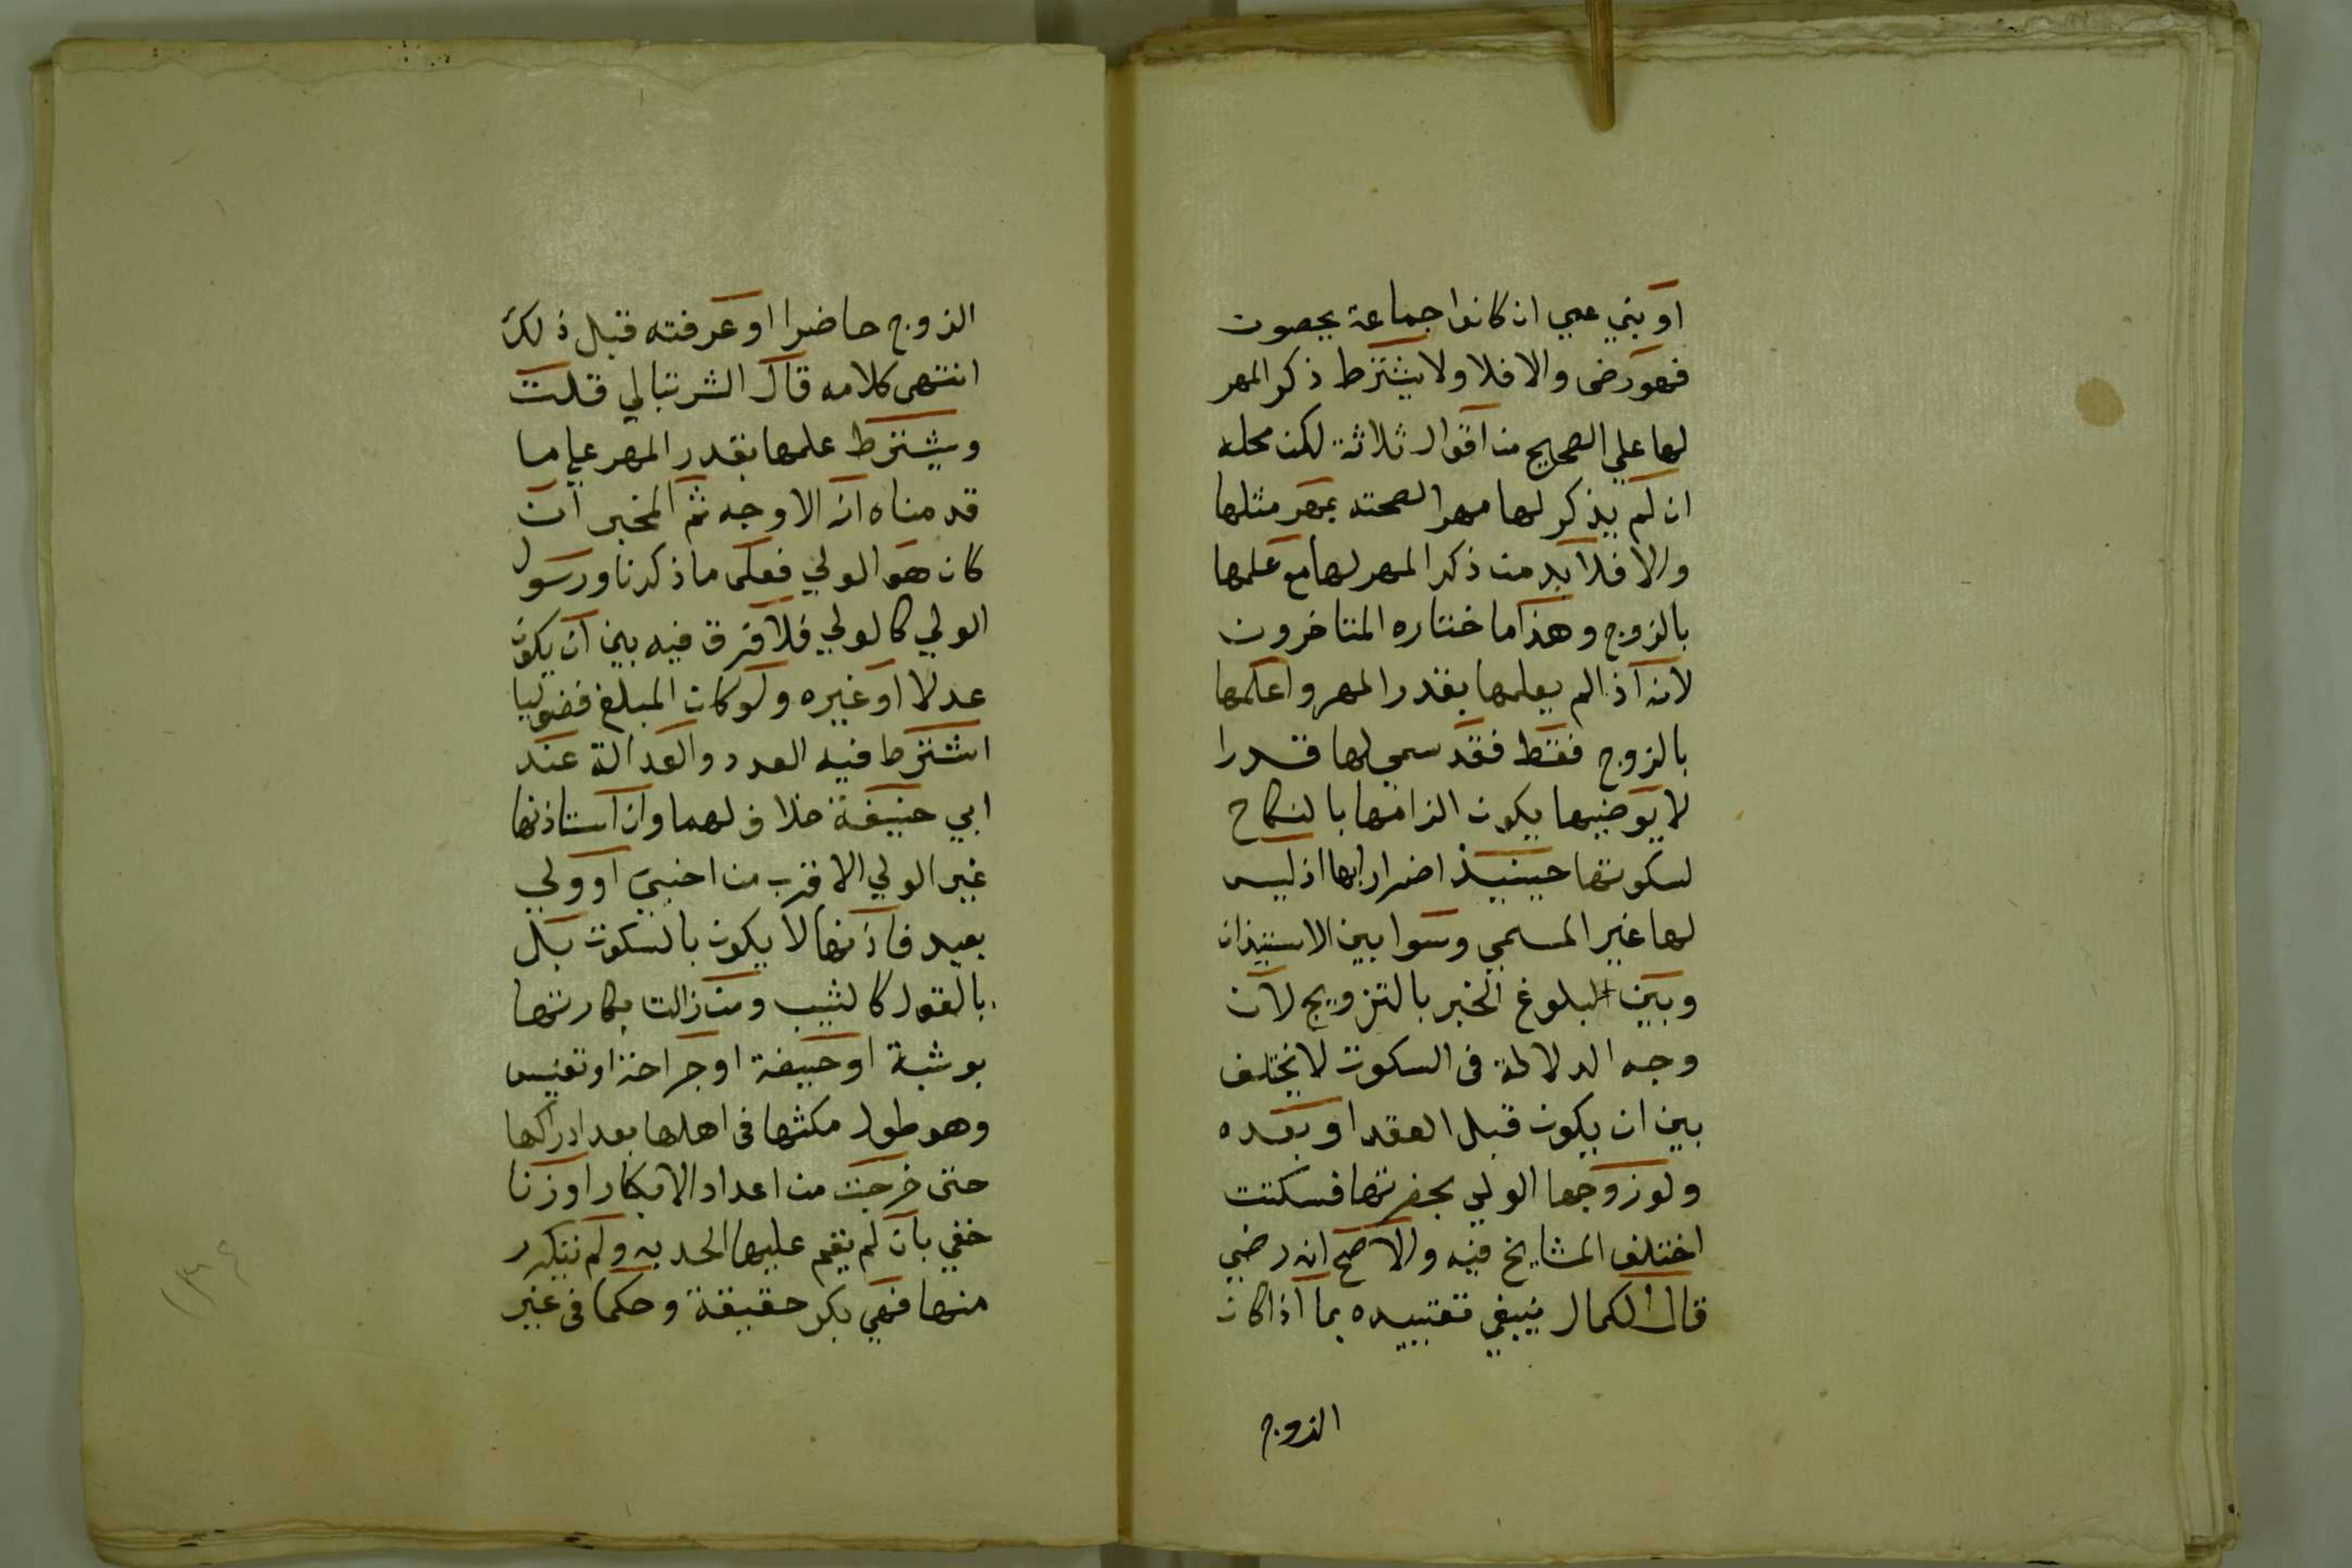 او بني عمي ان كانوا جماعة يحصون
فهو رضى والا فلا ولا يشترط ذكر المهر
لها علي الصحيح من اقوال ثلاثة لكن محله
ان لم يذكر لها مهر الصحته بمهر مثلها
والا فلا بد من ذكر المهر لها مع علمها
بالزوج وهذا ما ختاره المتاخرون
لانه اذا لم يعلمها بقدر المهر واعلمها
بالزوج فقط فقد سمي لها قدرا
لا يرضيها يكون الزامها بالنكاح
لسكوتها حينيذ اضرارا بها اذ ليس
لها غير المسمي وسوا بين الاستيذان
وبين البلوغ الخبر بالتزويج لان
وجه الدلالة فى السكوت لا يختلف
بين ان يكون قبل العقد او بعده
ولو زوجها الولي بحضرتها فسكتت
اختلف المشايخ فيه والاصح انه رضي
قال الكمال ينبغي تقييده بما اذا كان
الزوج
الزوج حاضرا او عرفته قبل ذلك
انتهى كلامه قال الشرنبالي قلت
ويشترط علمها بقدر المهر علي ما
قدمناه انه الاوجه ثم المخبر ان
كان هو الولي فعلى ما ذكرنا ورسول
الولي كالولي فلا فرق فيه بين ان يكون
عدلا او غيره ولو كان المبلغ فضوليا
اشترط فيه العدد والعدالة عند
ابي حنيفة خلاف لهما وان استاذنها
غير الولي الاقرب من اجنبي او ولي
بعيد فاذنها لا يكون بالسكوت بل
بالقول كالثيب ومن زالت بكارتها
بوثبة او حيضة او جراحة او تعنيس
وهو طول مكثها فى اهلها بعد ادراكها
حتى خرجت من اعداد الابكار او زنا
خفي بان لم يقم عليها الحد به ولم يتكرر
منها فهي بكر حقيقة وحكما فى غير